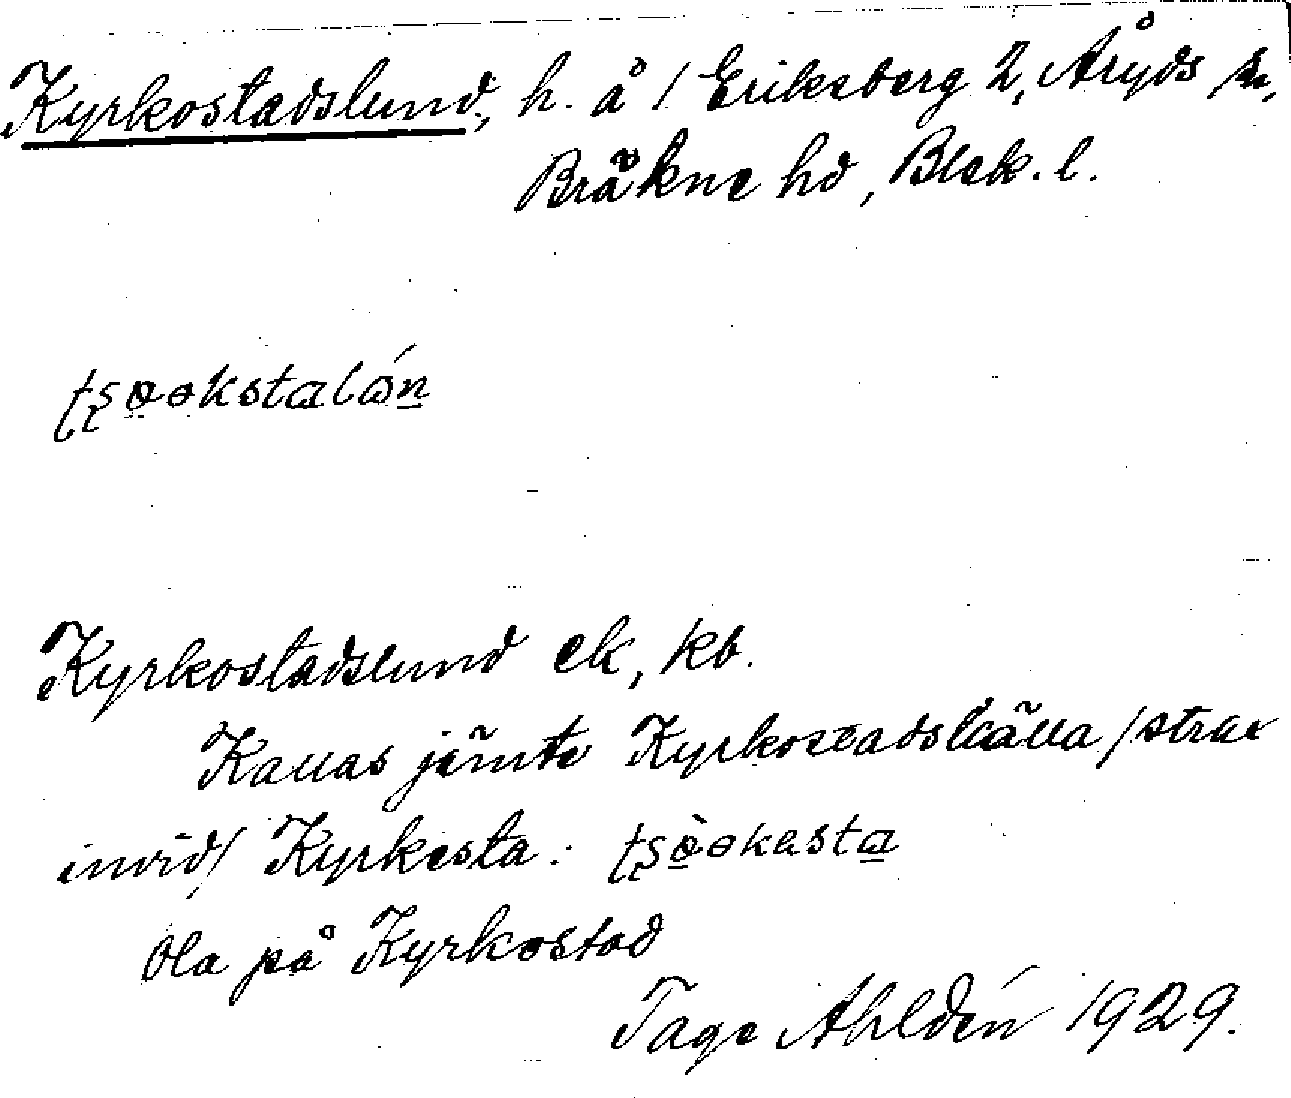 Kyrkostadslund, h. å 1 Eriksberg 2, Åryds sn,
Bräkne hd, Blek. l.
Kyrkostadslund ek, kb.
Kallas jämte Kyrkostadskälla /strax
invid/ Kyrkesta:
Ola på Kyrkostad
Tage Ahldén 1929.